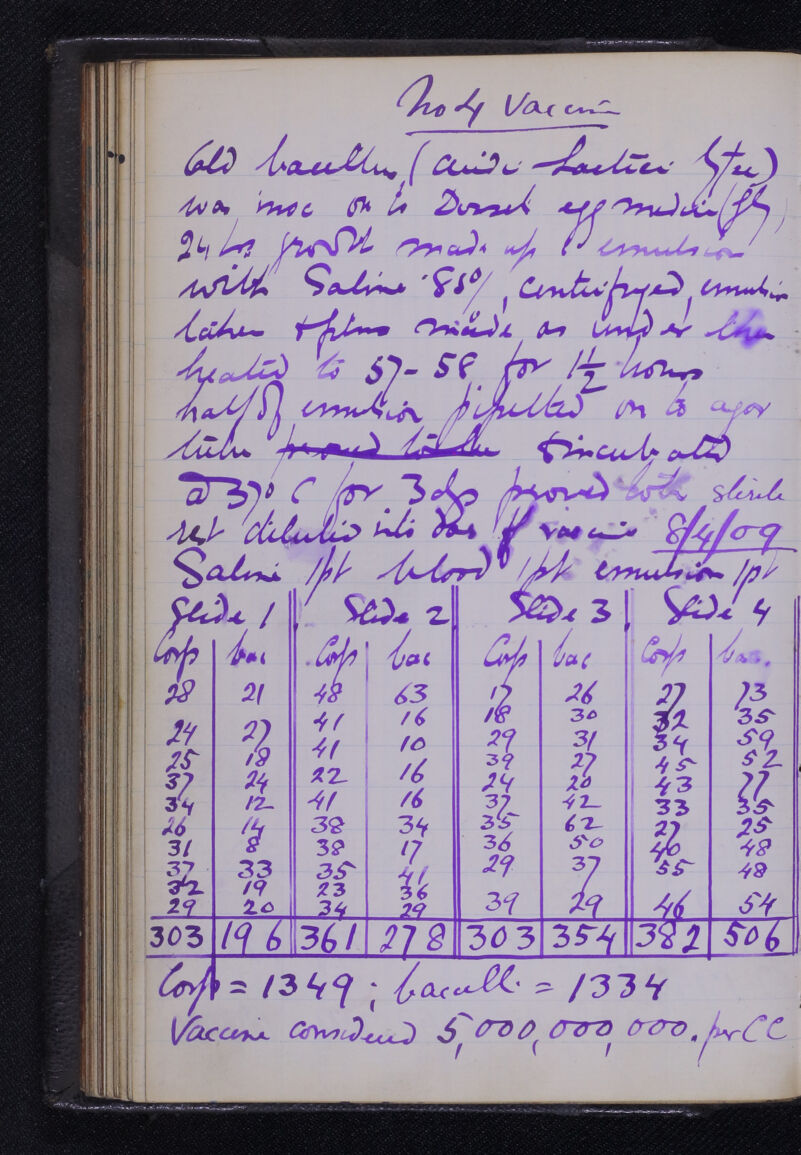 No 4 Vaccine
Cold bacillus, (acidi Lactici type)
was inoc on to Dorset egg medium
24 hrs growth made up emulsion
with Saline ·85%, centrifuged, emulsion
taken + films made as under then
heated to 57-58 for 1½ hours
half of emulsion pipetted on to agar
tube proved to be + incubated
at 37° C for 3 dys proved sterile
rest diluted into of vaccine 8/4/09
Saline 1pt blood 1pt emulsion 1pt
Slide 1 Slide 2 Slide 3 Slide 4
Corp bac Corp bac Corp bac Corp bac.
28 21 48 63 17 26 27 73
24 27 41 16 18 30 32 35
25 18 41 10 29 31 34 59
37 24 22 16 39 27 45 52
34 12 41 16 24 20 43 77
26 14 38 34 37 42 33 35
31 8 38 17 35 62 27 25
37 33 35 41 36 50 40 48
32 19 23 36 29 37 55 48
29 20 34 29 39 29 46 54
303 196 361 278 303 354 382 506
Corp = 1349; bacilli. = 1334
Vaccine considered 5,000,000,000. per CC